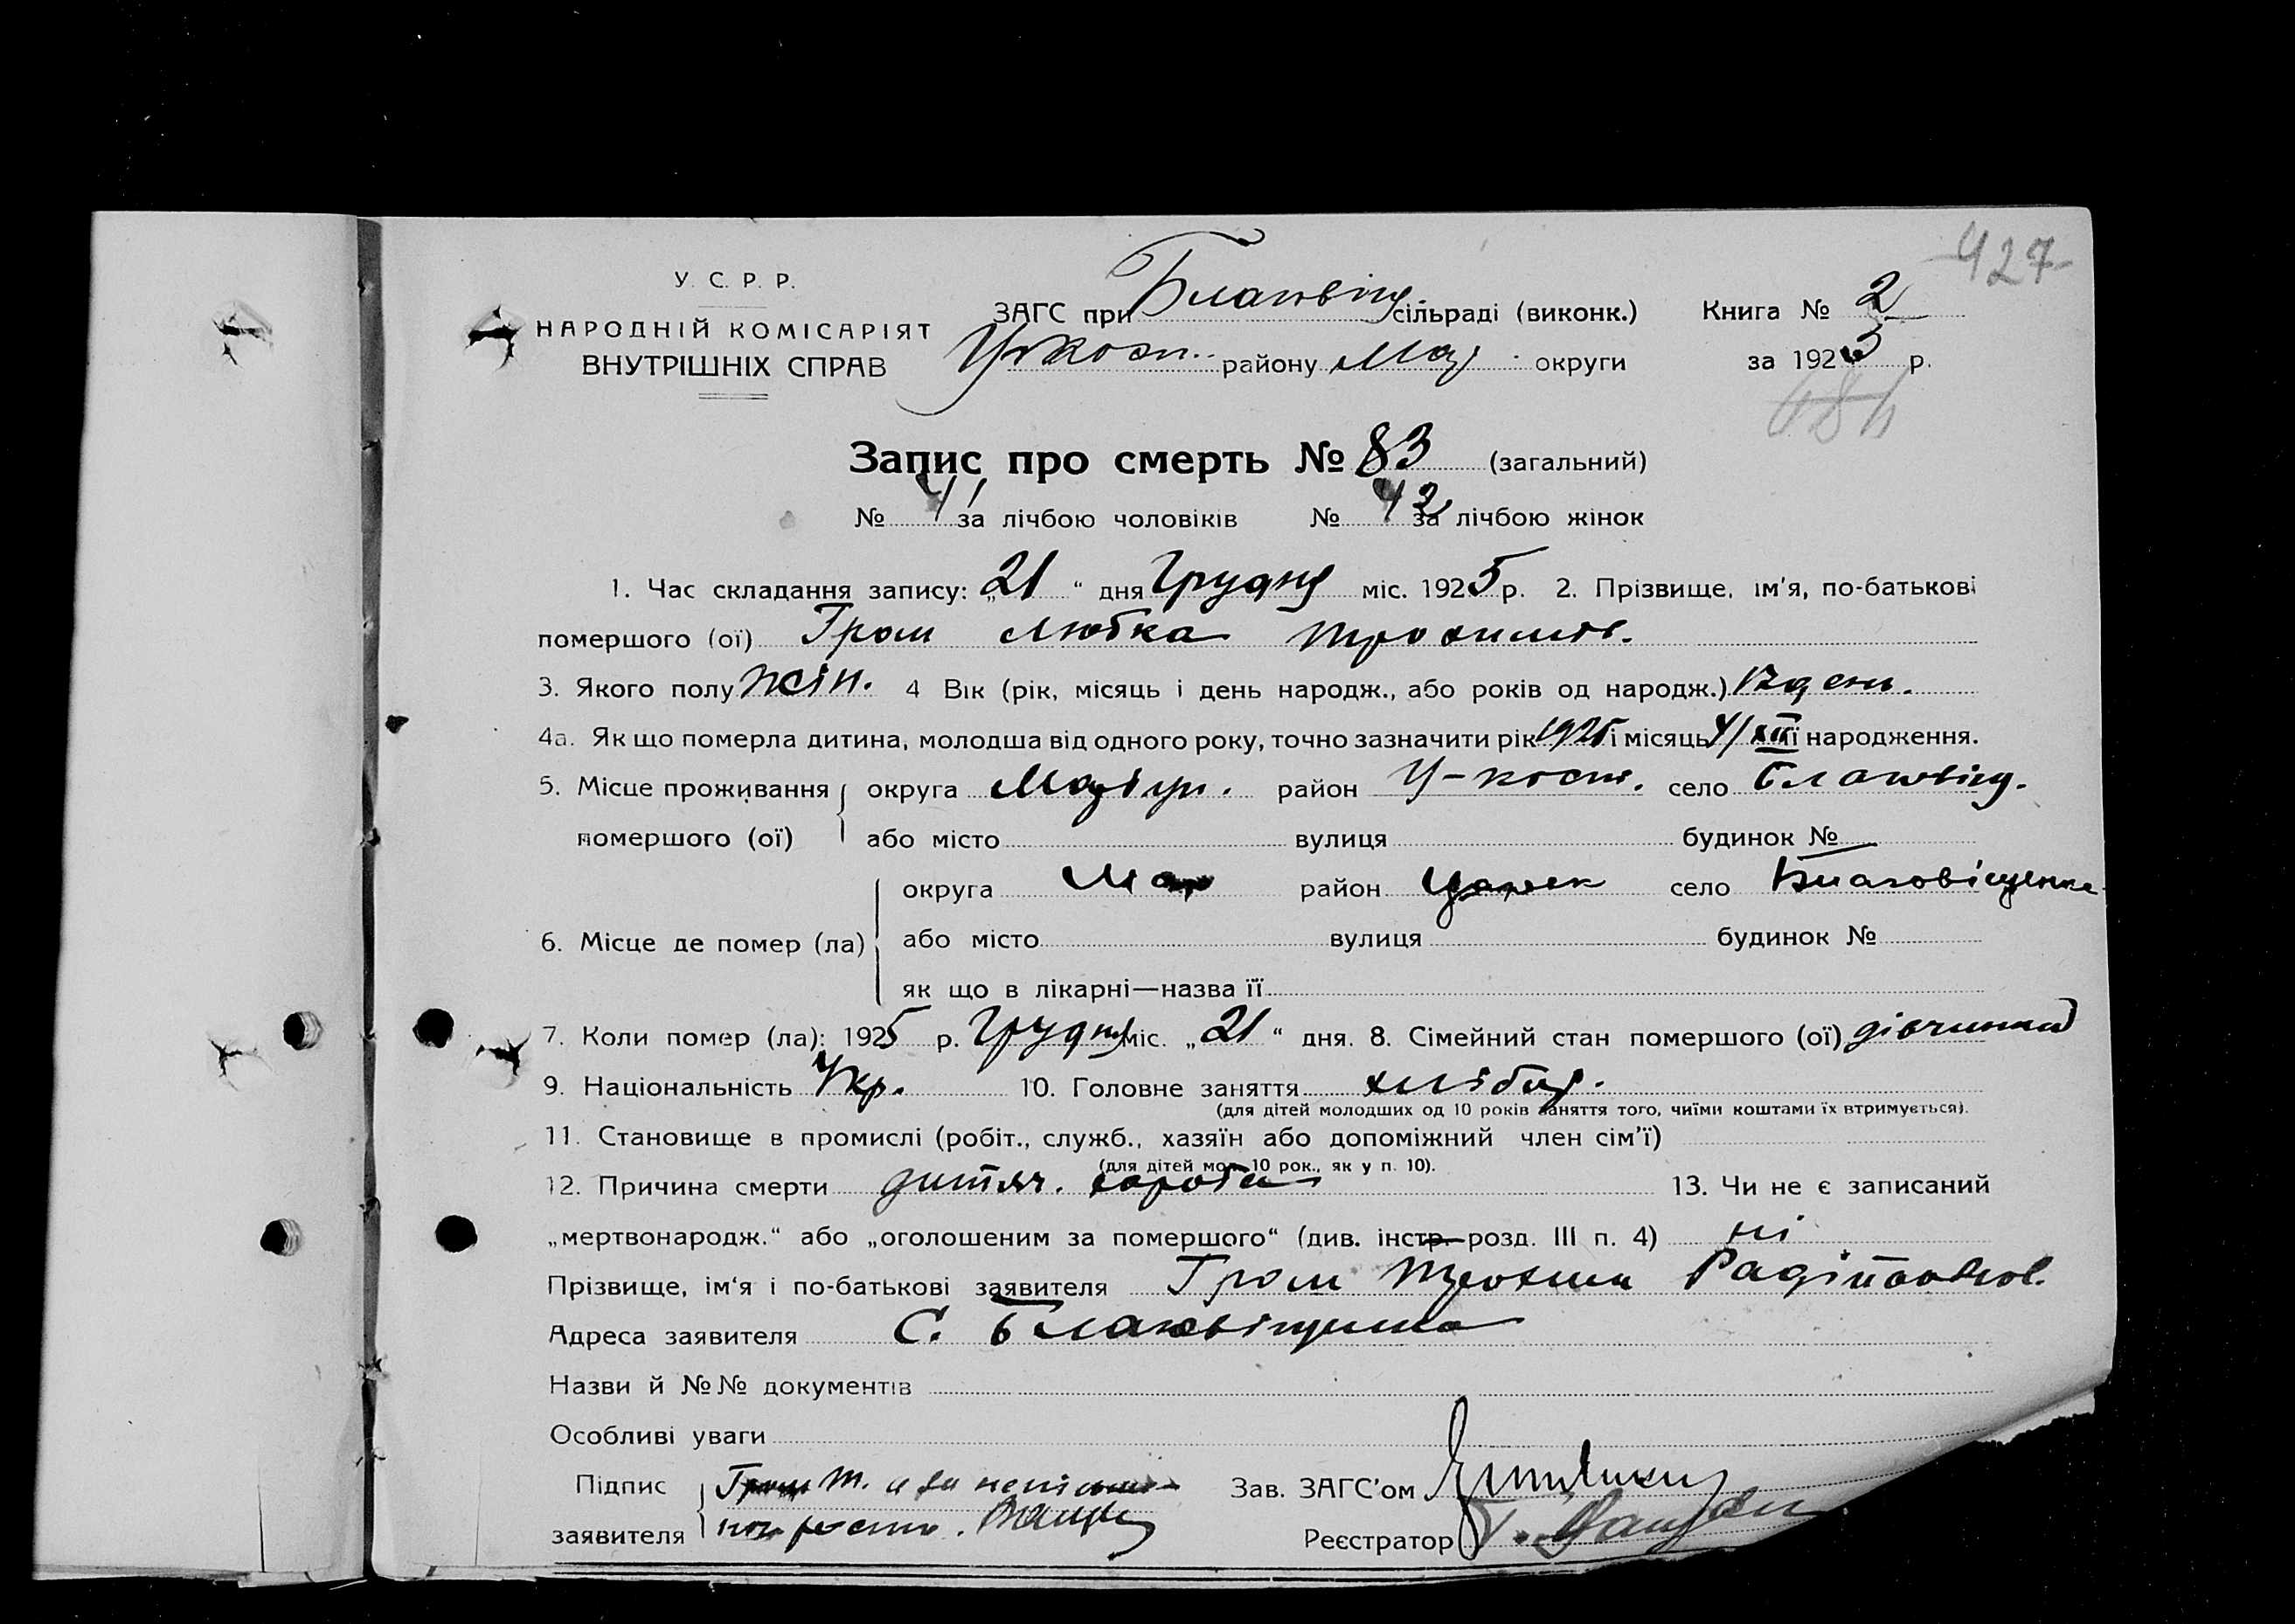 427
У. С. Р. Р.
НАРОДНІЙ КОМІСАРІЯТ
ВНУТРІШНІХ СПРАВ
ЗАГС при Благовіщ. сільраді (виконк.) Книга № 2
району Мар. округи за 1925 р.
Запис про смерть № 83 (загальний)
№ 41 за лічбою чоловіків № 42 за лічбою жінок
1. Час складання запису: „21“ дня Грудня міс. 1925 р. 2. Прізвище, ім'я, по-батькові
помершого (ої) Гром Любка Трохимів.
3. Якого полу жін. 4 Вік (рік, місяць і день народж., або років од народж.) 17 день.
4а. Як що померла дитина, молодша від одного року, точно зазначити рік 1925 і місяць 4/XII її народження.
5. Місце проживання округа Маріуп. район У-конст. село Благовіщ.
помершого (ої) або місто вулиця будинок №
округа Мар район село Благовіщенка
6. Місце де помер (ла) або місто вулиця будинок №
як що в лікарні—назва її
7. Коли помер (ла): 1925 р. Грудня міс. „21“ дня. 8. Сімейний стан помершого (ої) дівчинка
9. Національність Укр. 10. Головне заняття хлібор.
(для дітей молодших од 10 років заняття того, чиїми коштами їх втримується).
11. Становище в промислі (робіт., служб., хазяїн або допоміжний член сім'ї)
(для дітей мол. 10 рок., як у п. 10).
12. Причина смерти дитяч. хороба 13. Чи не є записаний
„мертвонародж.“ або „оголошеним за помершого“ (див. інстр. розд. III п. 4) ні
Прізвище, ім'я і по-батькові заявителя Гром Трохим
Адреса заявителя С. Благовіщенка
Назви й №№ документів
Особливі уваги
Підпис Гром Т. а за Зав. ЗАГС'ом
заявителя Реєстратор